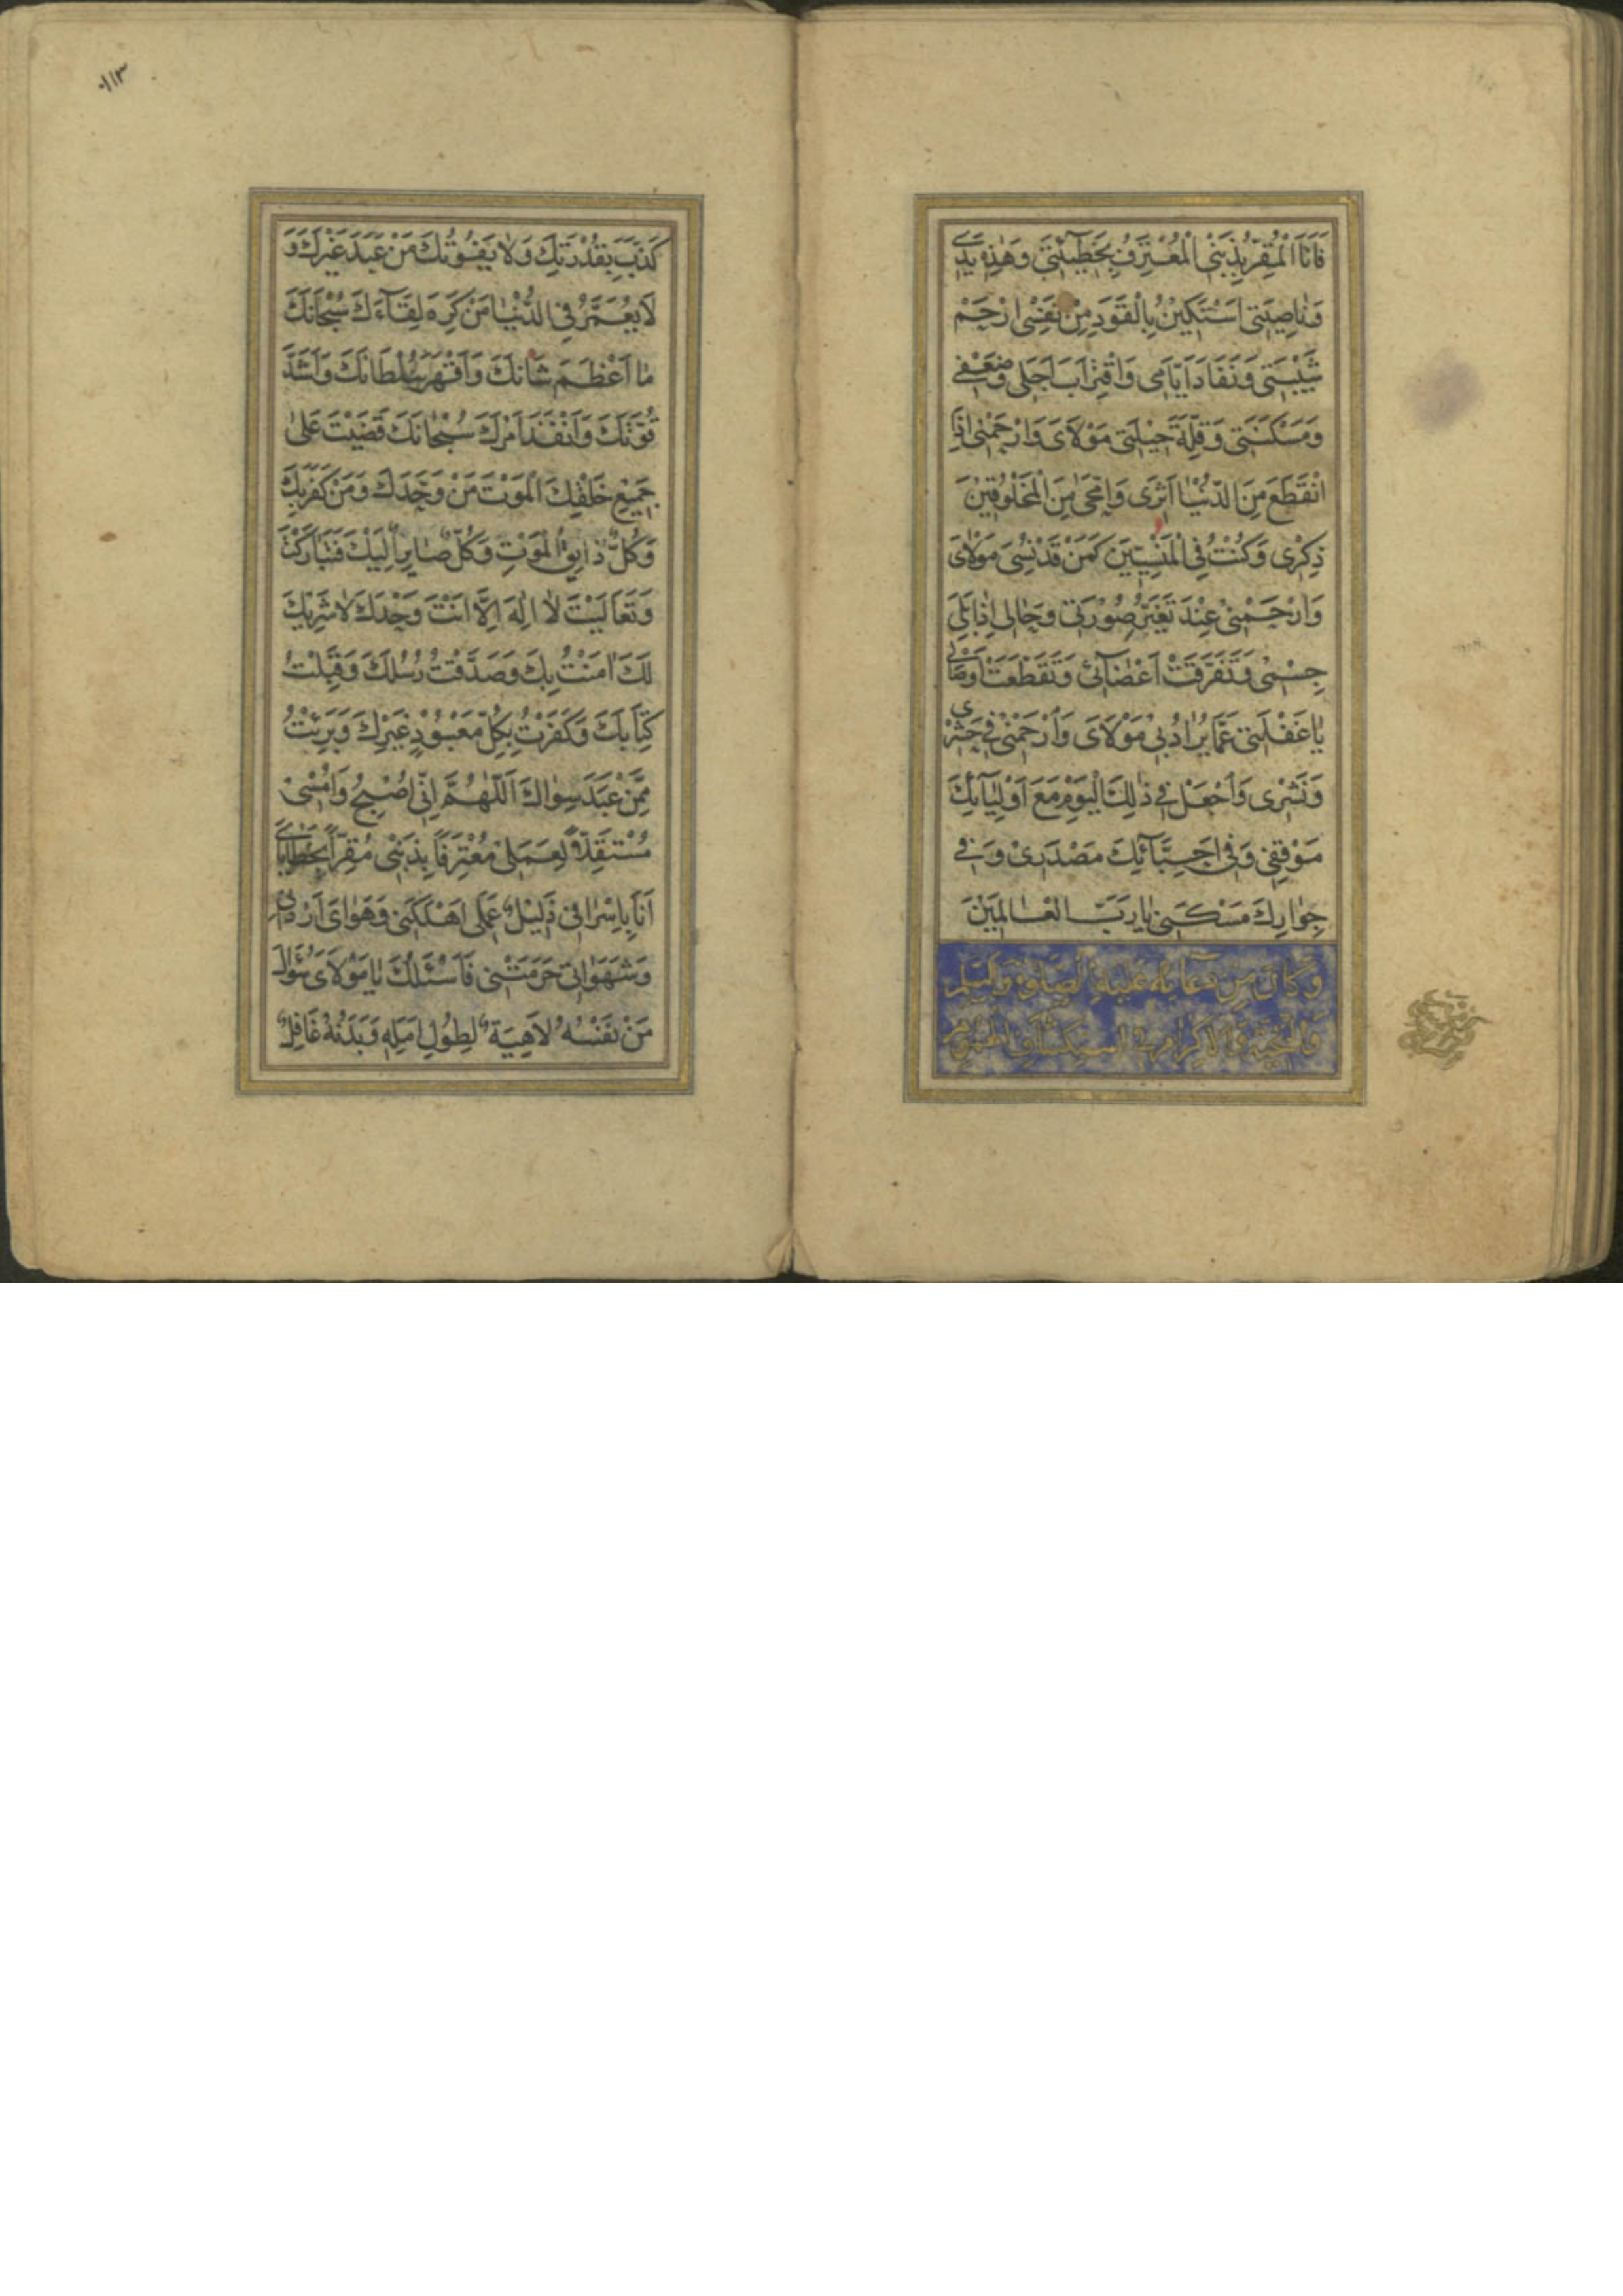 فَاَنَا الْمُقِرُّ بِذَنْبِى الْمُعْتَرِفُ بِخَطٖيئَتٖى وَهٰذِهٖ يَدٖى
وَنَاصِيَتٖى اَسْتَكٖينُ بِالْقَوَدِ مِنْ نَفْسٖى اِرْحَمْ
شَيْبَتٖى وَنَفَادَ اَيَّامٖى وَاقْتِرَابَ اَجَلٖى وَضَعْفٖى
وَمَسْكَنَتٖى وَقِلَّةَ حٖيلَتٖى مَوْلَاىَ وَارْحَمْنٖى اِذَا
انْقَطَعَ مِنَ الدُّنْيَا اَثَرٖى وَامَّحٰى مِنَ الْمَخْلُوقٖينَ
ذِكْرٖى وَكُنْتُ فِى الْمَنْسِيّٖينَ كَمَنْ قَدْ نُسِىَ مَوْلَاىَ
وَارْحَمْنٖى عِنْدَ تَغَيُّرِ صُورَتٖى وَحَالٖى اِذَا بَلِىَ
جِسْمٖى وَتَفَرَّقَتْ اَعْضَآئٖى وَتَقَطَّعَتْ اَوْصَالٖى
يَا غَفْلَتٖى عَمَّا يُرَادُ بٖى مَوْلَاىَ وَارْحَمْنٖى فٖى حَشْرٖى
وَنَشْرٖى وَاجْعَلْ فٖى ذٰلِكَ الْيَوْمِ مَعَ اَوْلِيَآئِكَ
مَوْقِفٖى وَفٖى اَحِبَّآئِكَ مَصْدَرٖى وَفٖى
جِوَارِكَ مَسْكَنٖى يَا رَبَّ الْعَالَمٖينَ
وَكَانَ مِنْ دُعَائِهِ عَلَيْهِ الصَّلٰوةُ وَالتَّسْلِيمُ
وَالتَّحِيَّةُ وَالْاِكْرَامُ فِى اسْتِكْشَافِ الْهُمُومِ
١١٣
كَذَّبَ بِقُدْرَتِكَ وَلَا يَفُوتُكَ مَنْ عَبَدَ غَيْرَكَ وَ
لَا يُعَمَّرُ فِى الدُّنْيَا مَنْ كَرِهَ لِقَآءَكَ سُبْحَانَكَ
مَا اَعْظَمَ شَاْنَكَ وَاَقْهَرَ سُلْطَانَكَ وَاَشَدَّ
قُوَّتَكَ وَاَنْفَذَ اَمْرَكَ سُبْحَانَكَ قَضَيْتَ عَلٰى
جَمٖيعِ خَلْقِكَ الْمَوْتَ مَنْ وَحَّدَكَ وَمَنْ كَفَرَ بِكَ
وَكُلٌّ ذَائِقُ الْمَوْتِ وَكُلٌّ صَائِرٌ اِلَيْكَ فَتَبَارَكْتَ
وَتَعَالَيْتَ لَا اِلٰهَ اِلَّا اَنْتَ وَحْدَكَ لَا شَرٖيكَ
لَكَ اٰمَنْتُ بِكَ وَصَدَّقْتُ رُسُلَكَ وَقَبِلْتُ
كِتَابَكَ وَكَفَرْتُ بِكُلِّ مَعْبُودٍ غَيْرِكَ وَبَرِئْتُ
مِمَّنْ عَبَدَ سِوَاكَ اَللّٰهُمَّ اِنّٖى اُصْبِحُ وَاُمْسٖى
مُسْتَقِلًّا لِعَمَلٖى مُعْتَرِفًا بِذَنْبٖى مُقِرًّا بِخَطَايَاىَ
اَنَا بِاِسْرَافٖى ذَلٖيلٌ عَمَلٖى اَهْلَكَنٖى وَهَوَاىَ اَرْدَانٖى
وَشَهَوَاتٖى حَرَمَتْنٖى فَاَسْئَلُكَ يَا مَوْلَاىَ سُؤَالَ
مَنْ نَفْسُهُ لَاهِيَةٌ لِطُولِ اَمَلِهٖ وَبَدَنُهُ غَافِلٌ